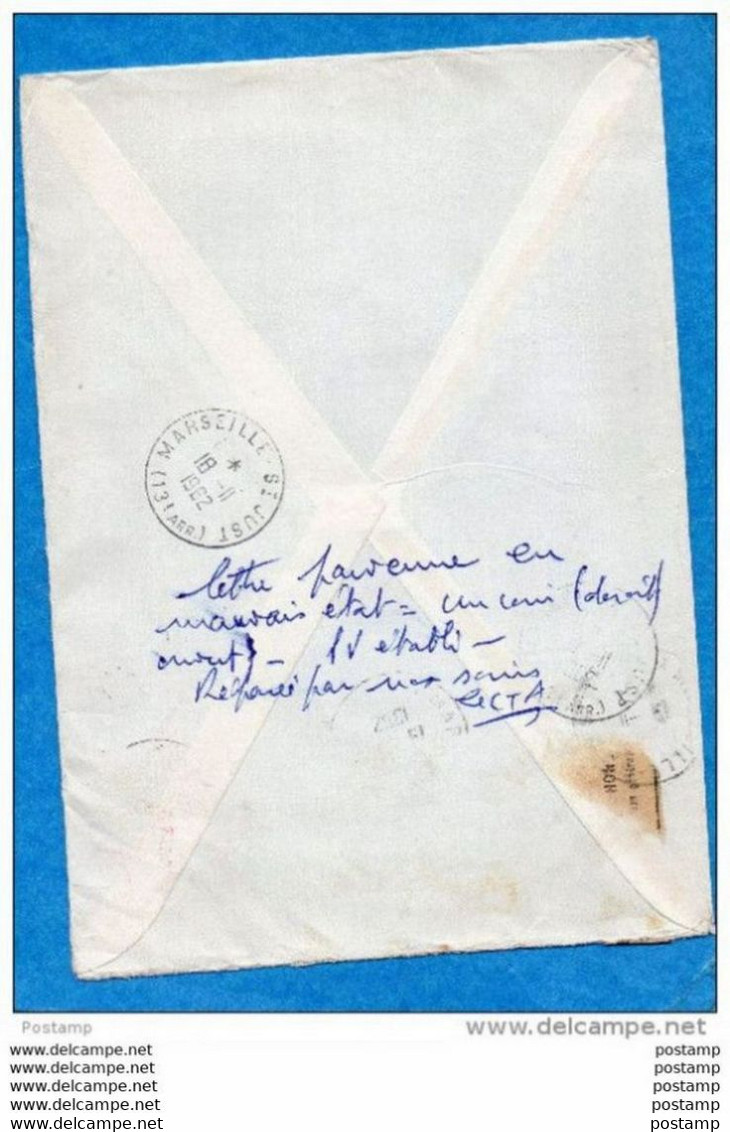 MARSEILLE - ST JUST
(13E ARR.)
18 -11
1962
lettre parvenue en
mauvais état = un coin (droit)
ouvert) - PV établi -
Réparé par nos soins
Le CTA
ARR.)
NON.
Postamp
www.delcampe.net
www.delcampe.net postamp
www.delcampe.net postamp
www.delcampe.net postamp
www.delcampe.net postamp
www.delcampe.net postamp